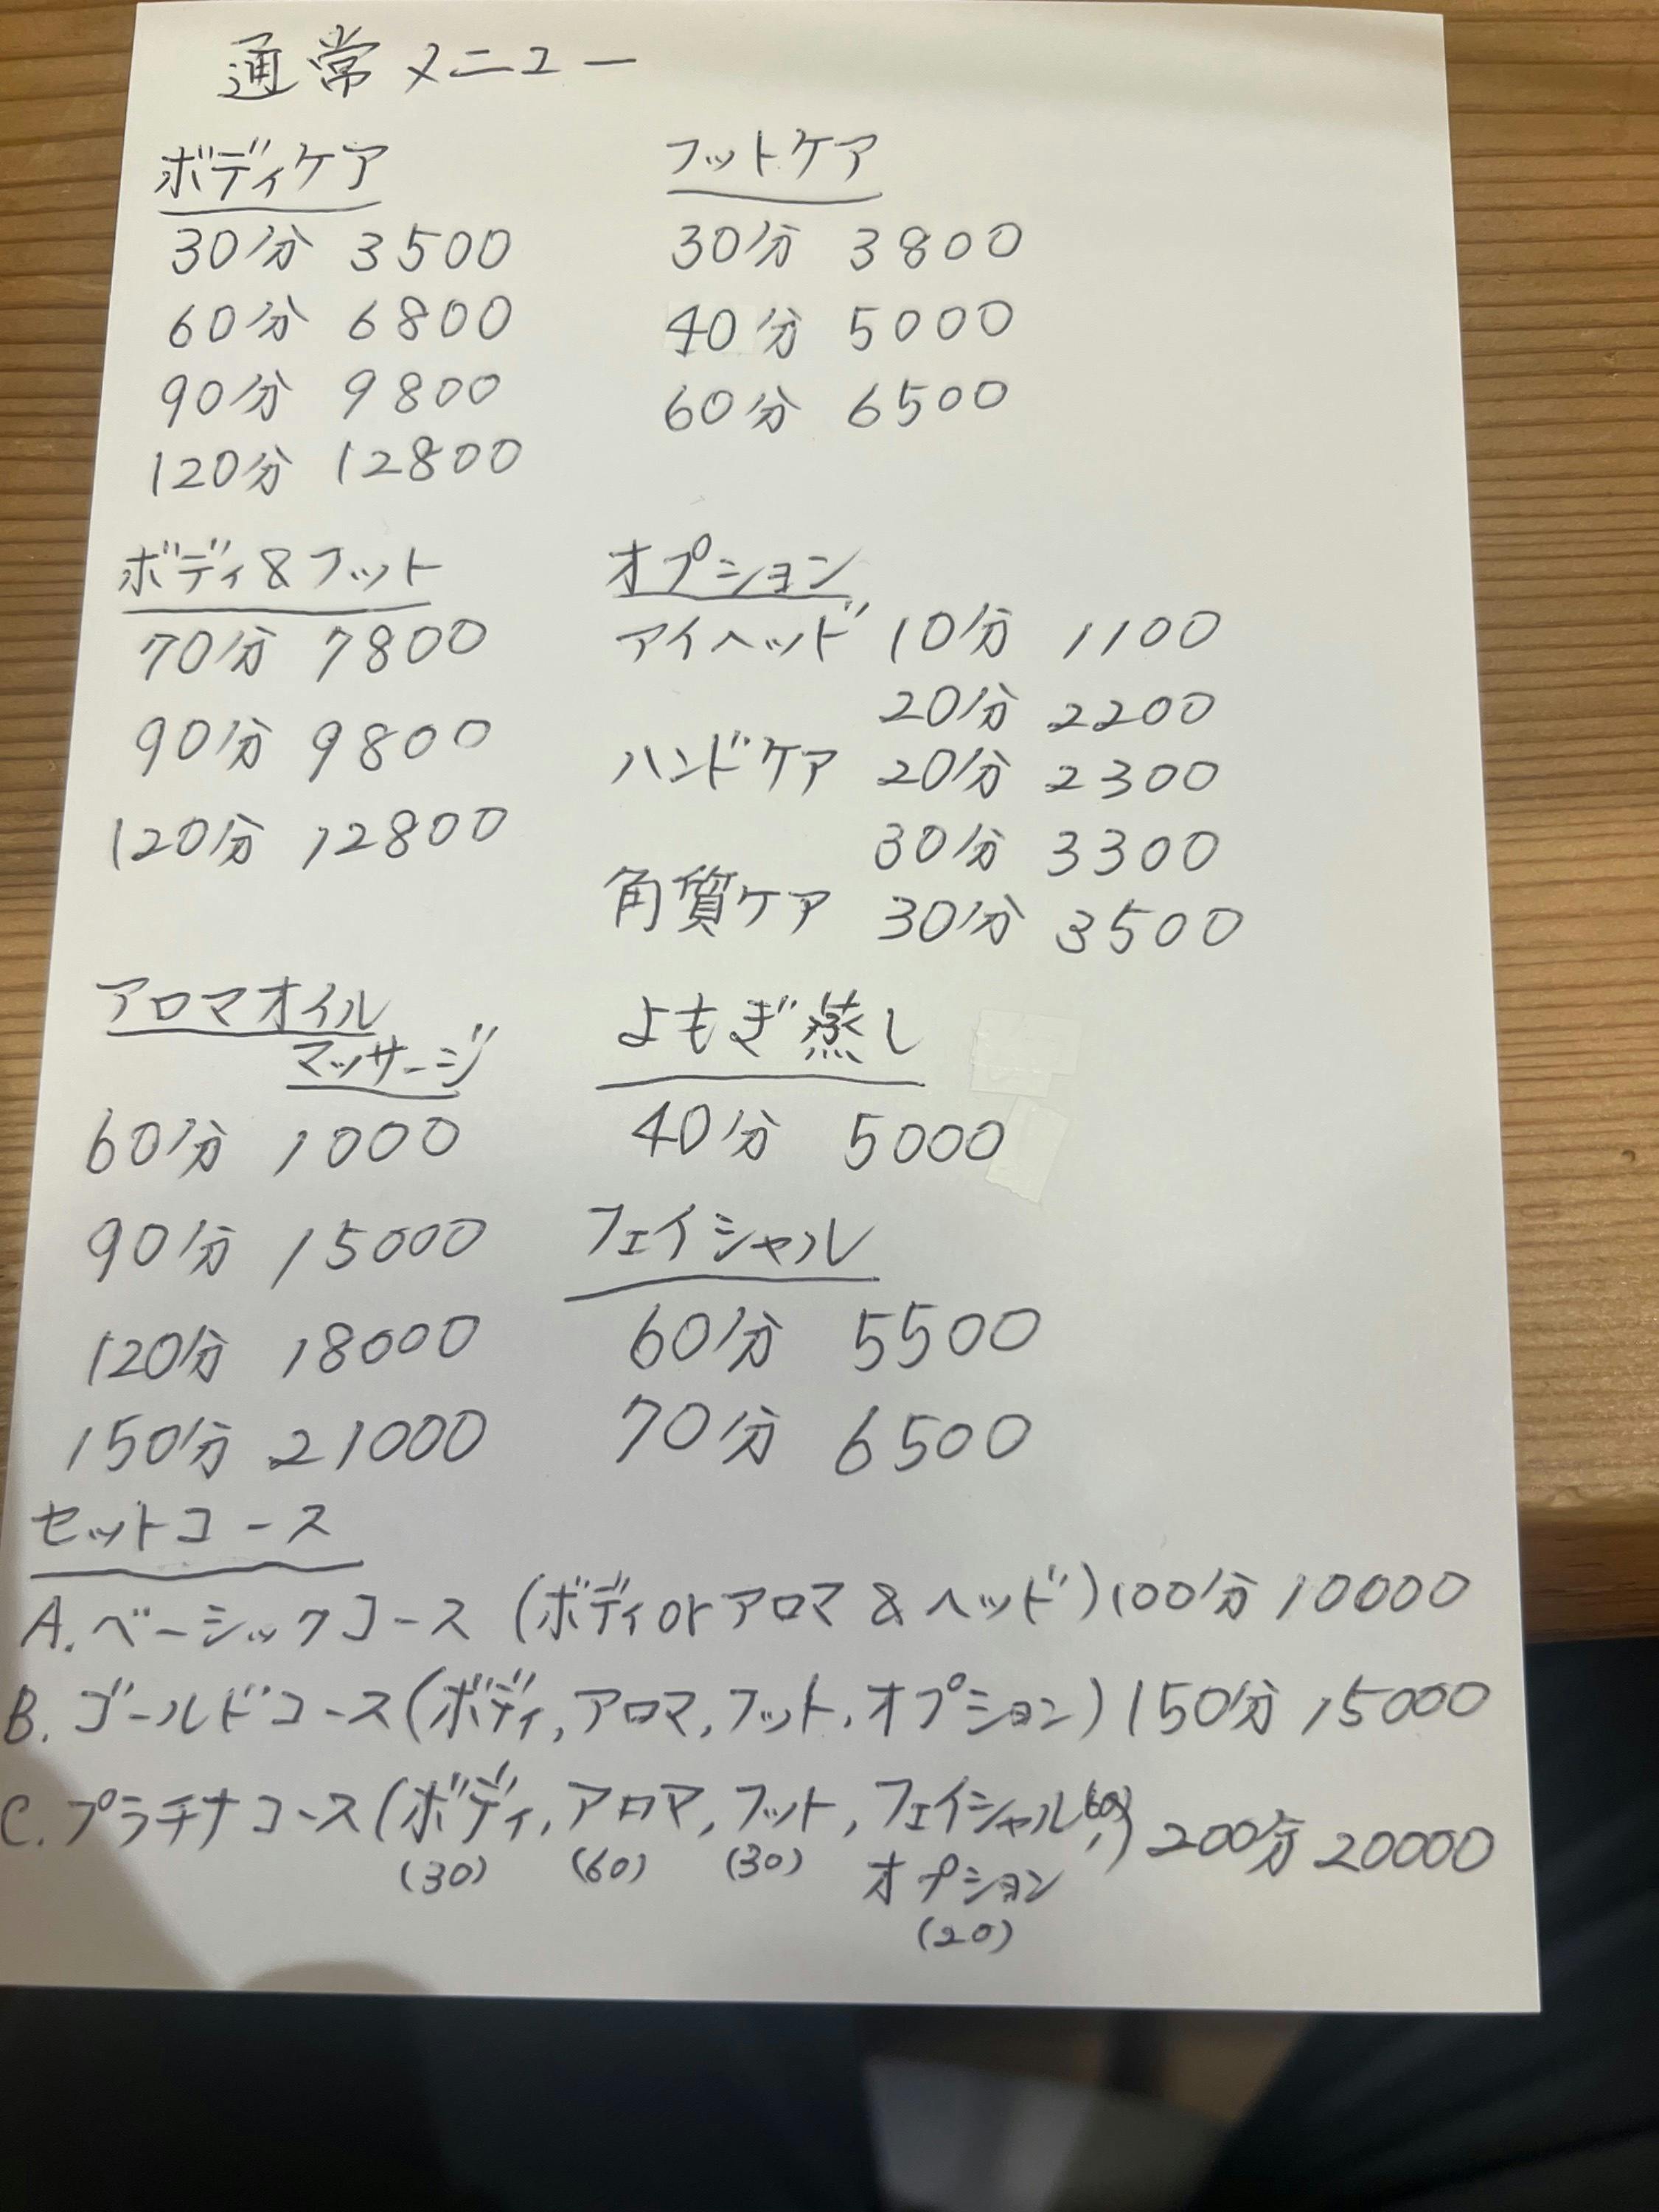 通常メニュー
ボディケア
30分 3500
60分 6800
90分 9800
120分 12800
フットケア
30分 3800
40分 5000
60分 6500
ボディ&フット
70分 7800
90分 9800
120分 12800
オプション
アイヘッド 10分 1100
20分 2200
ハンドケア 20分 2300
30分 3300
角質ケア 30分 3500
アロマオイル
マッサージ
60分 1000
90分 15000
120分 18000
150分 21000
よもぎ蒸し
40分 5000
フェイシャル
60分 5500
70分 6500
セットコース
A.ベーシックコース (ボディorアロマ&ヘッド)100分 10000
B.ゴールドコース(ボディ,アロマ,フット,オプション)150分 15000
C.プラチナコース(ボディ,アロマ,フット,フェイシャル(60),) 200分 20000
(30) (60) (30) オプション
(20)